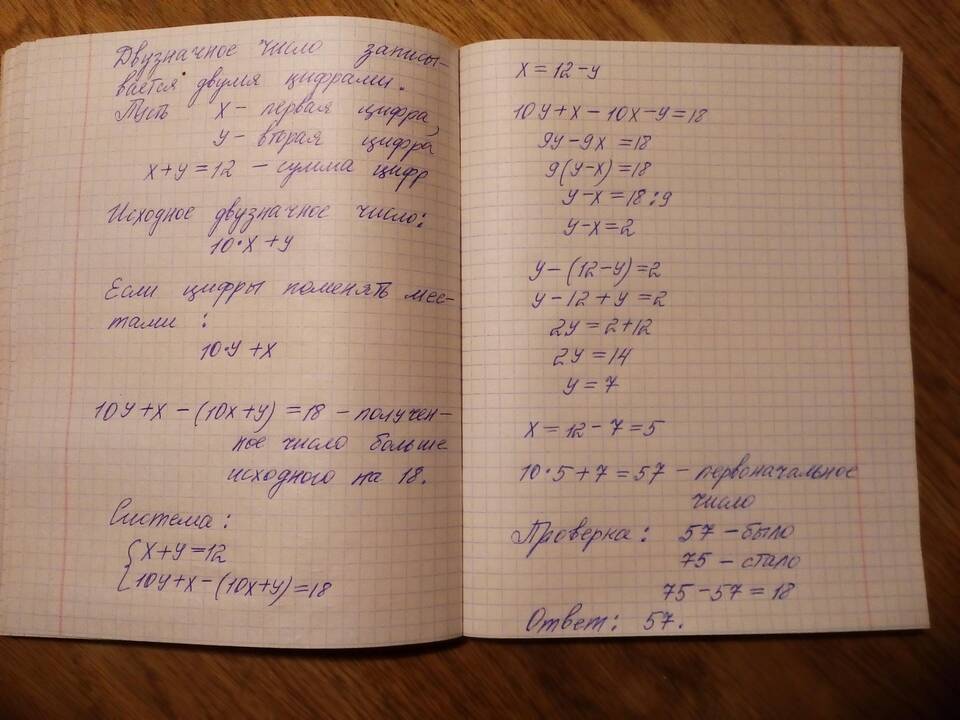 Двузначное число записы-
вается двумя цифрами.
Пусть x - первая цифра,
y - вторая цифра
x+y=12 - сумма цифр
Исходное двузначное число:
10·x+y
Если цифры поменять мес-
тами:
10·y+x
10y+x-(10x+y)=18 - получен-
ное число больше
исходного на 18.
Система:
{x+y=12
{10y+x-(10x+y)=18
x=12-y
10y+x-10x-y=18
9y-9x=18
9(y-x)=18
y-x=18:9
y-x=2
y-(12-y)=2
y-12+y=2
2y=2+12
2y=14
y=7
x=12-7=5
10·5+7=57 - первоначальное
число
Проверка: 57 - было
75 - стало
75-57=18
Ответ: 57.